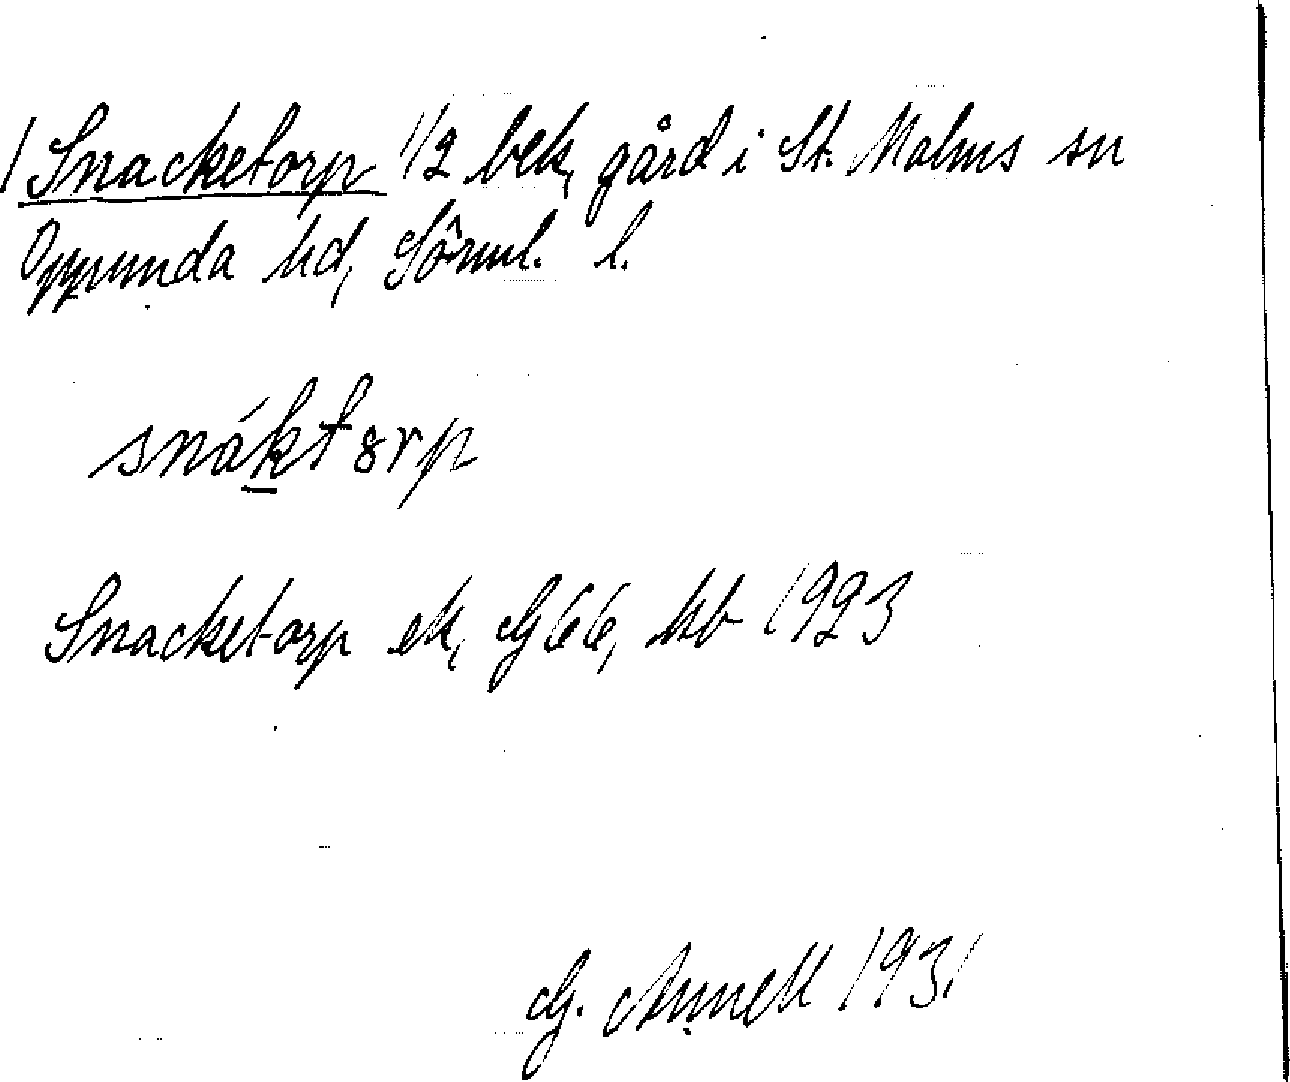 1 Snacketorp 1/2 bek, gård i St. Malms sn
Oppunda hd, Sörml. l.
snáktorp
Snacketorp ek, G 66, kb 1923
G. Annell 1931